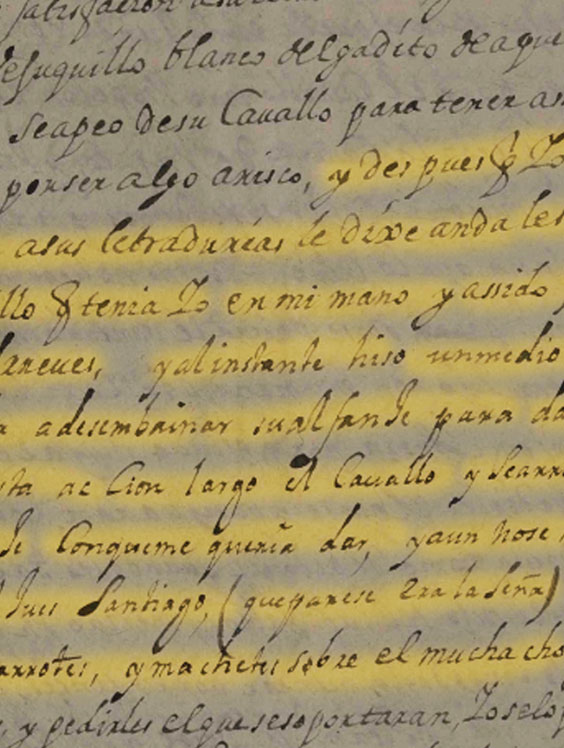 satisfacion
desuquillo blanco delgadito de aque
seapeo desu Cavallo para tener as
por ser algo arisco, y despues q̃ Yo
asus letradurias le dixe anda les
llo q̃ tenia Yo en mi mano y assido
lareves, y al instante hiso unmedio
adesembainar su alfange para da
sta accion largo el Cavallo y Searr
Conqueme queria dar, yaun nose
Santiago, (que parese era la Señã)
arrotes, y machetes sobre el muchacho
, y pedirles el que se soportaran, Yo selo